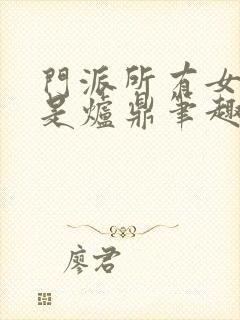 門派所有女
是爐鼎筆趣
廖君